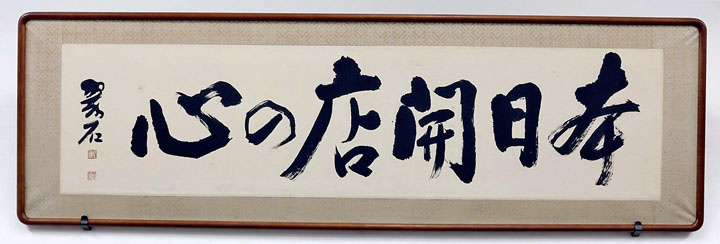 本日開店の心